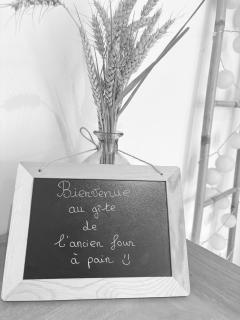 Bienvenue
au gîte
de
l'ancien four
à pain :)